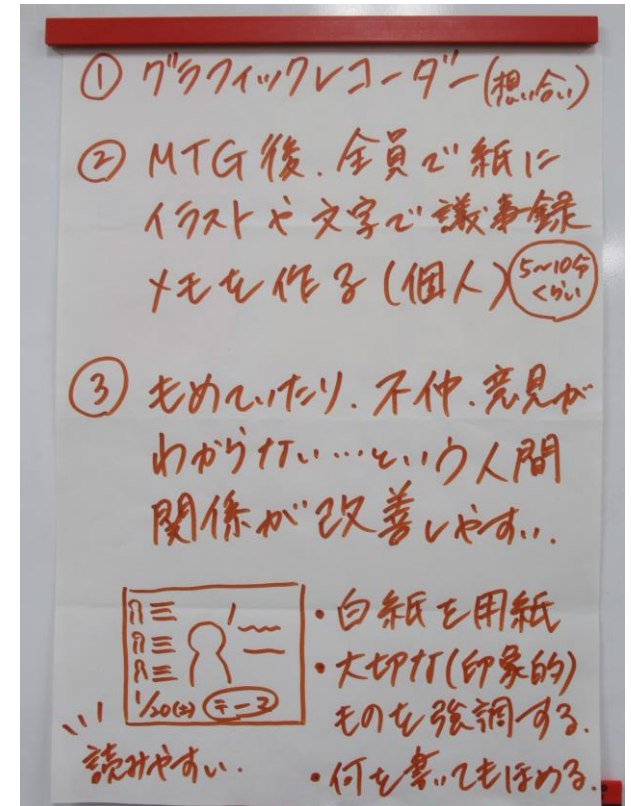 ① グラフィックレコーダー(想い合い)
② MTG後、全員で紙に
イラストや文字で議事録
メモを作る(個人)
5〜10分
くらい
③ もめていたり、不仲、意見が
わからない…という人間
関係が改善しやすい.
1/20(土) テーマ
読みやすい.
・白紙を用紙
・大切な(印象的)
ものを強調する.
・何を書いてもほめる.